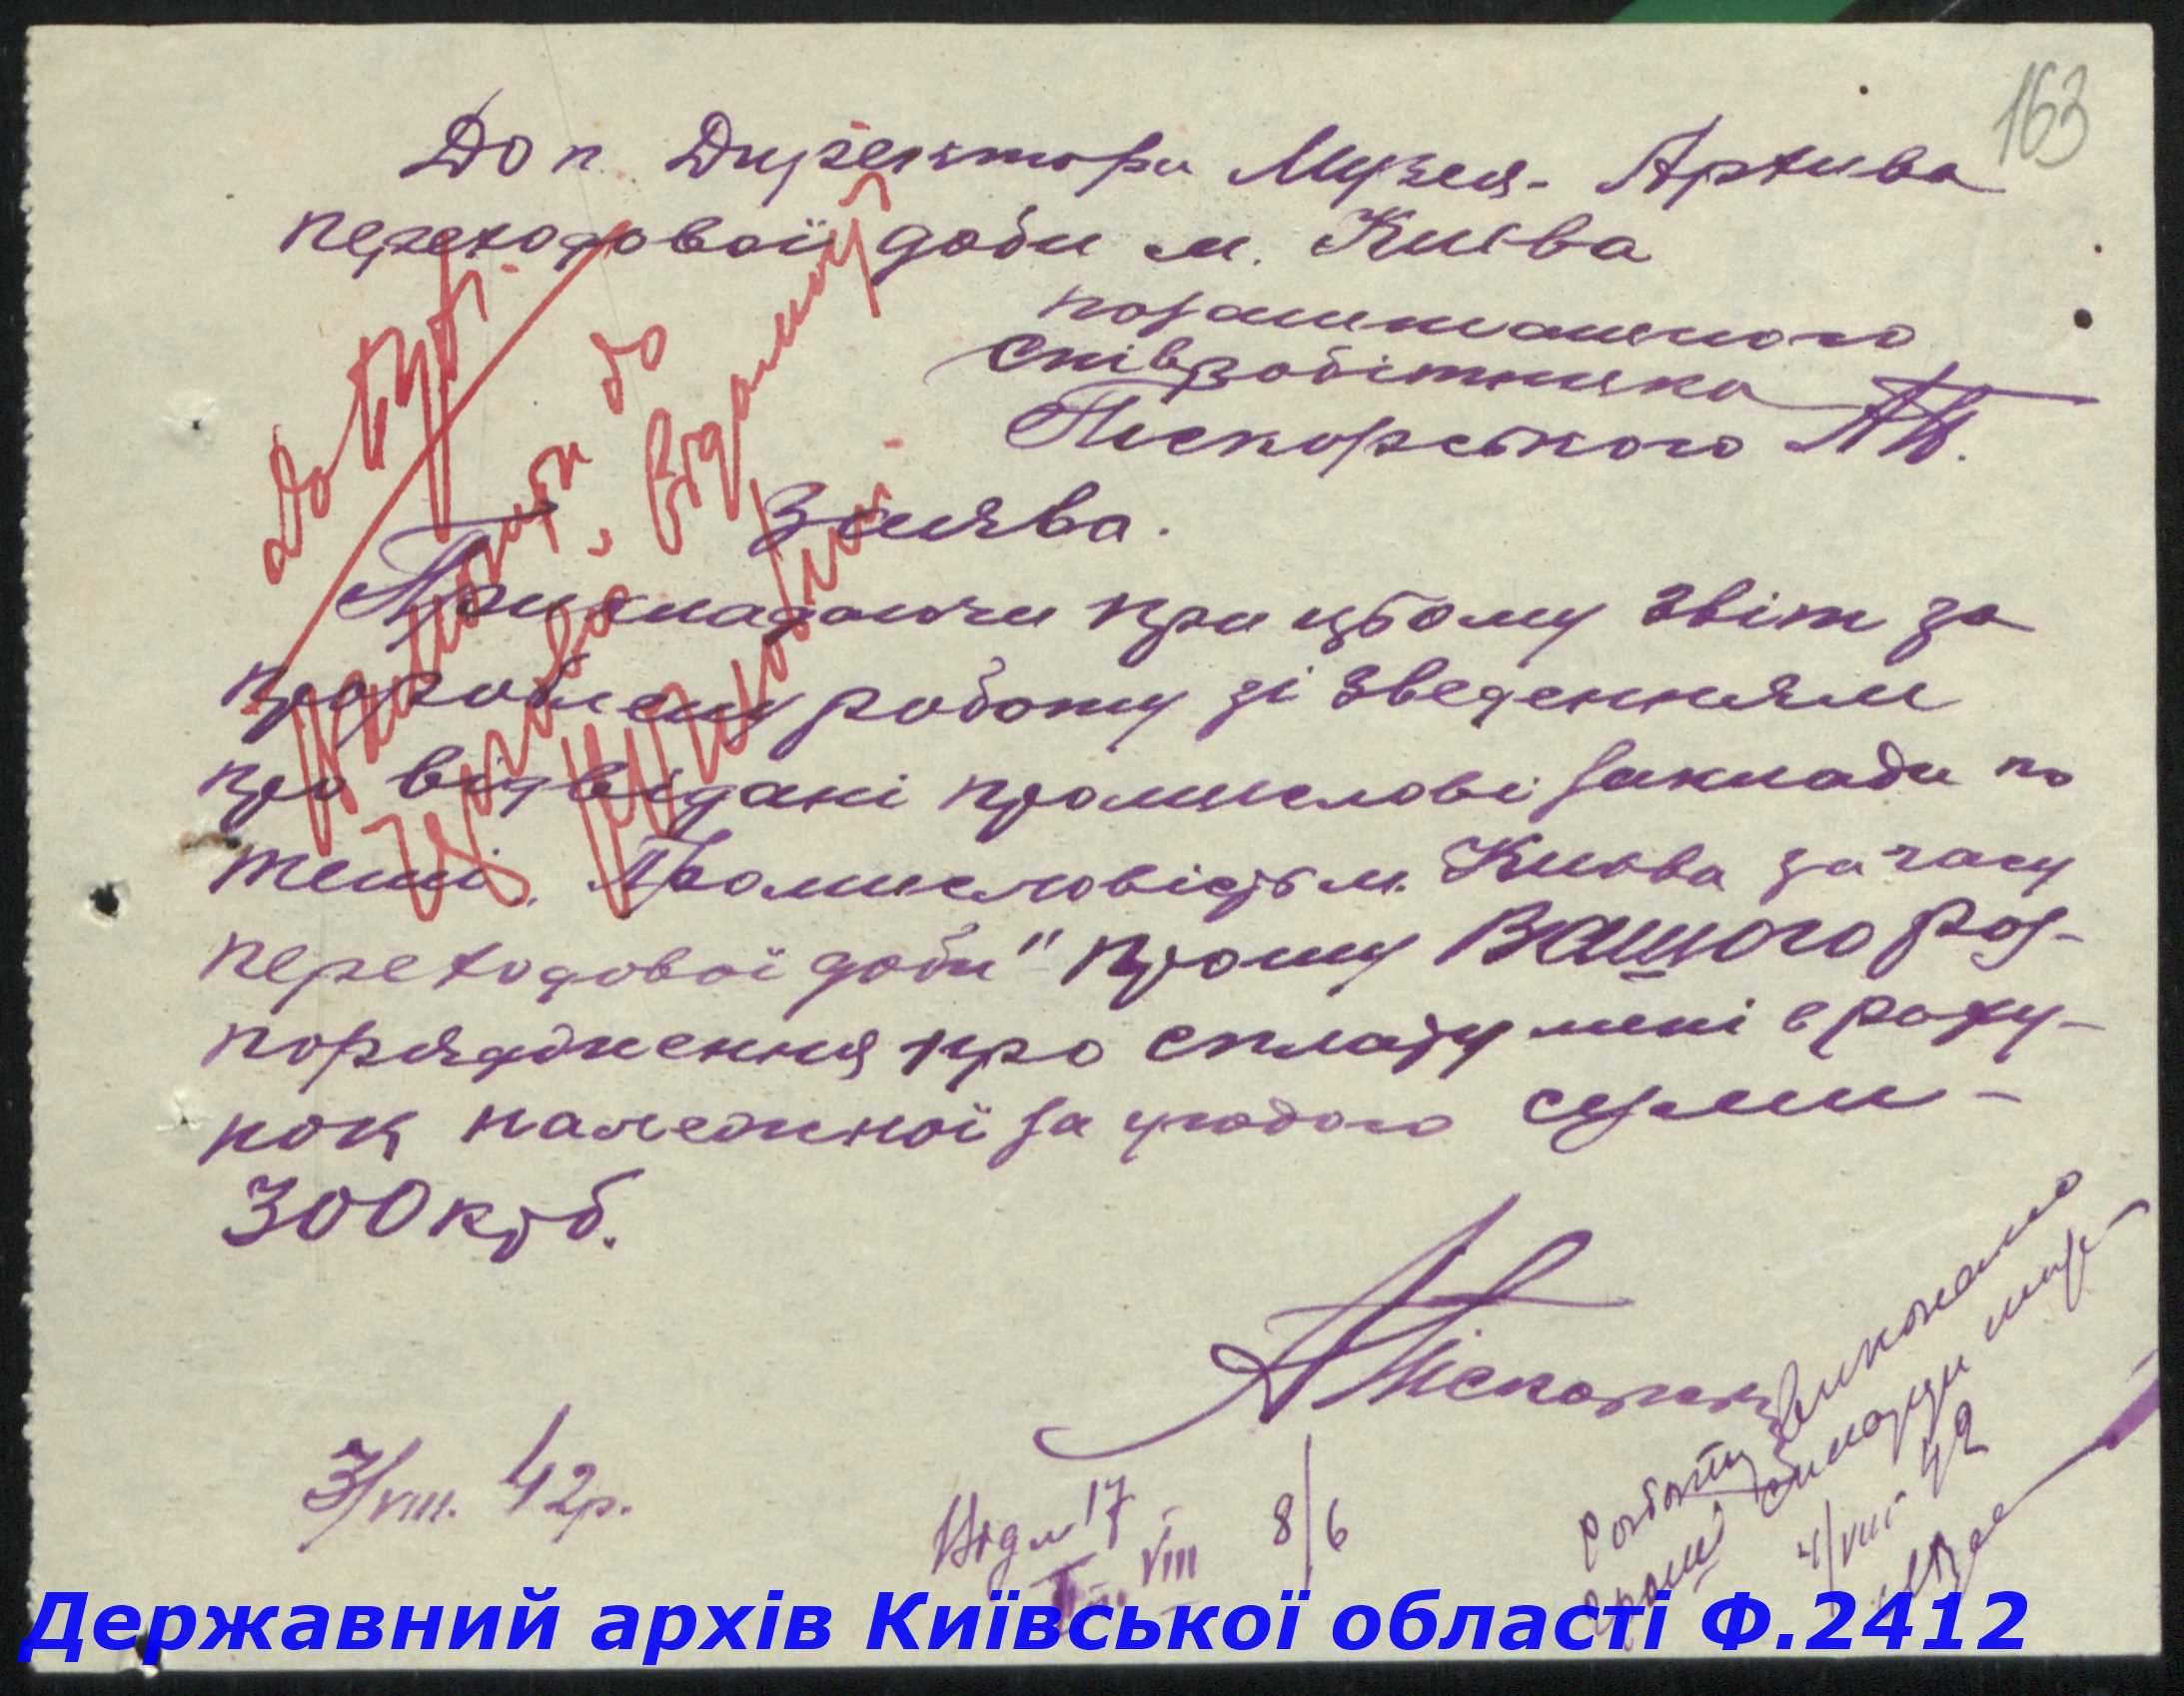 163
До п. Директора Музея-Архива
переходової доби м. Києва
позаштатного
співробітника
Піскорського А.П.
Заява.
Прикладаючи при цьому звіт за
пророблену роботу зі зведенням
про відвідані промислові заклади по
темі „Промисловість м. Києва за часу
переходової доби" прошу Вашого роз-
порядження про сплату мені в раху-
нок належної за угодою суми -
300 крб.
3/VIII. 42р.
До бух.
до
17
VIII
8/6
Роботу виконано
гроші
4/VIII 42
Державний архів Київської області Ф.2412